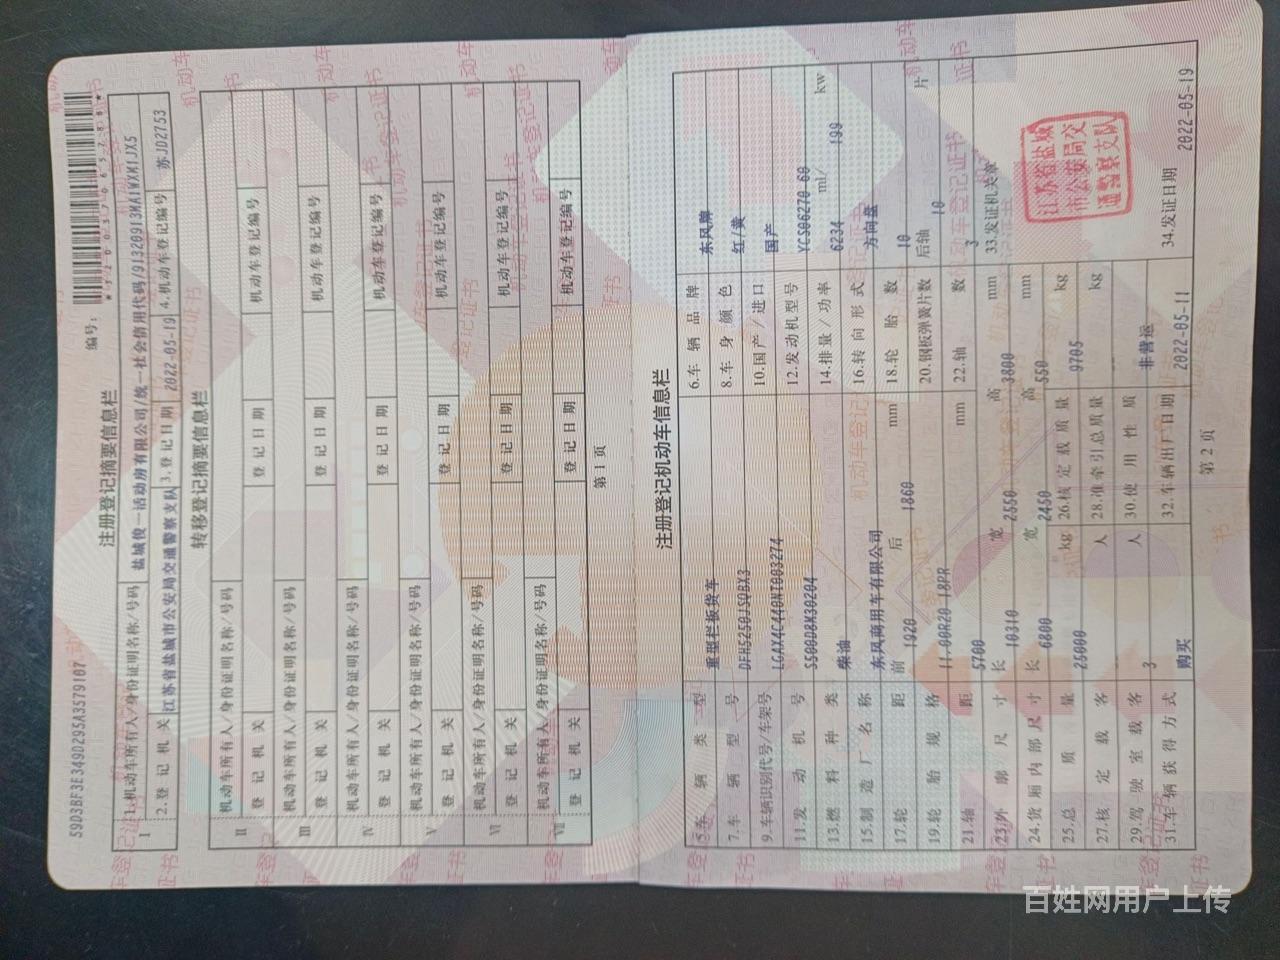 59D3BF3E349D295A3579107
编号：
注册登记摘要信息栏
I 1.机动车所有人/身份证明名称/号码 盐城俊一活动房有限公司/统一社会信用代码/91320913MA1WXM1JX5
2.登记机关 江苏省盐城市公安局交通警察支队 3.登记日期 2022-05-19 4.机动车登记编号 苏JD2753
转移登记摘要信息栏
II 机动车所有人/身份证明名称/号码
登记机关 登记日期 机动车登记编号
III 机动车所有人/身份证明名称/号码
登记机关 登记日期 机动车登记编号
IV 机动车所有人/身份证明名称/号码
登记机关 登记日期 机动车登记编号
V 机动车所有人/身份证明名称/号码
登记机关 登记日期 机动车登记编号
VI 机动车所有人/身份证明名称/号码
登记机关 登记日期 机动车登记编号
VII 机动车所有人/身份证明名称/号码
登记机关 登记日期 机动车登记编号
第1页
注册登记机动车信息栏
5.车辆类型 重型栏板货车 6.车辆品牌 东风牌
7.车辆型号 DFH5250JSQBX3 8.车身颜色 红/黄
9.车辆识别代号/车架号 LGAX4C440NT003274 10.国产/进口 国产
11.发动机号 12.发动机型号 YCS06270-60
13.燃料种类 柴油 14.排量/功率 6234 ml/ 199 kw
15.制造厂名称 东风商用车有限公司 16.转向形式 方向盘
17.轮距 前 1920 后 1860 mm 18.轮胎数 10
19.轮胎规格 11.00R20 18PR 20.钢板弹簧片数 后轴 10 片
21.轴距 5700 mm 22.轴数 3
23.外廓尺寸 长 10310 宽 2550 高 3800 mm 33.发证机关章
24.货厢内部尺寸 长 6800 宽 2450 高 550 mm
25.总质量 25000 kg 26.核定载质量 9705 kg
27.核定载客 人 28.准牵引总质量 kg
29.驾驶室载客 3 人 30.使用性质 非营运
31.车辆获得方式 购买 32.车辆出厂日期 2022-05-11 34.发证日期 2022-05-19
江苏省盐城
市公安局交
通警察支队
第2页
百姓网用户上传